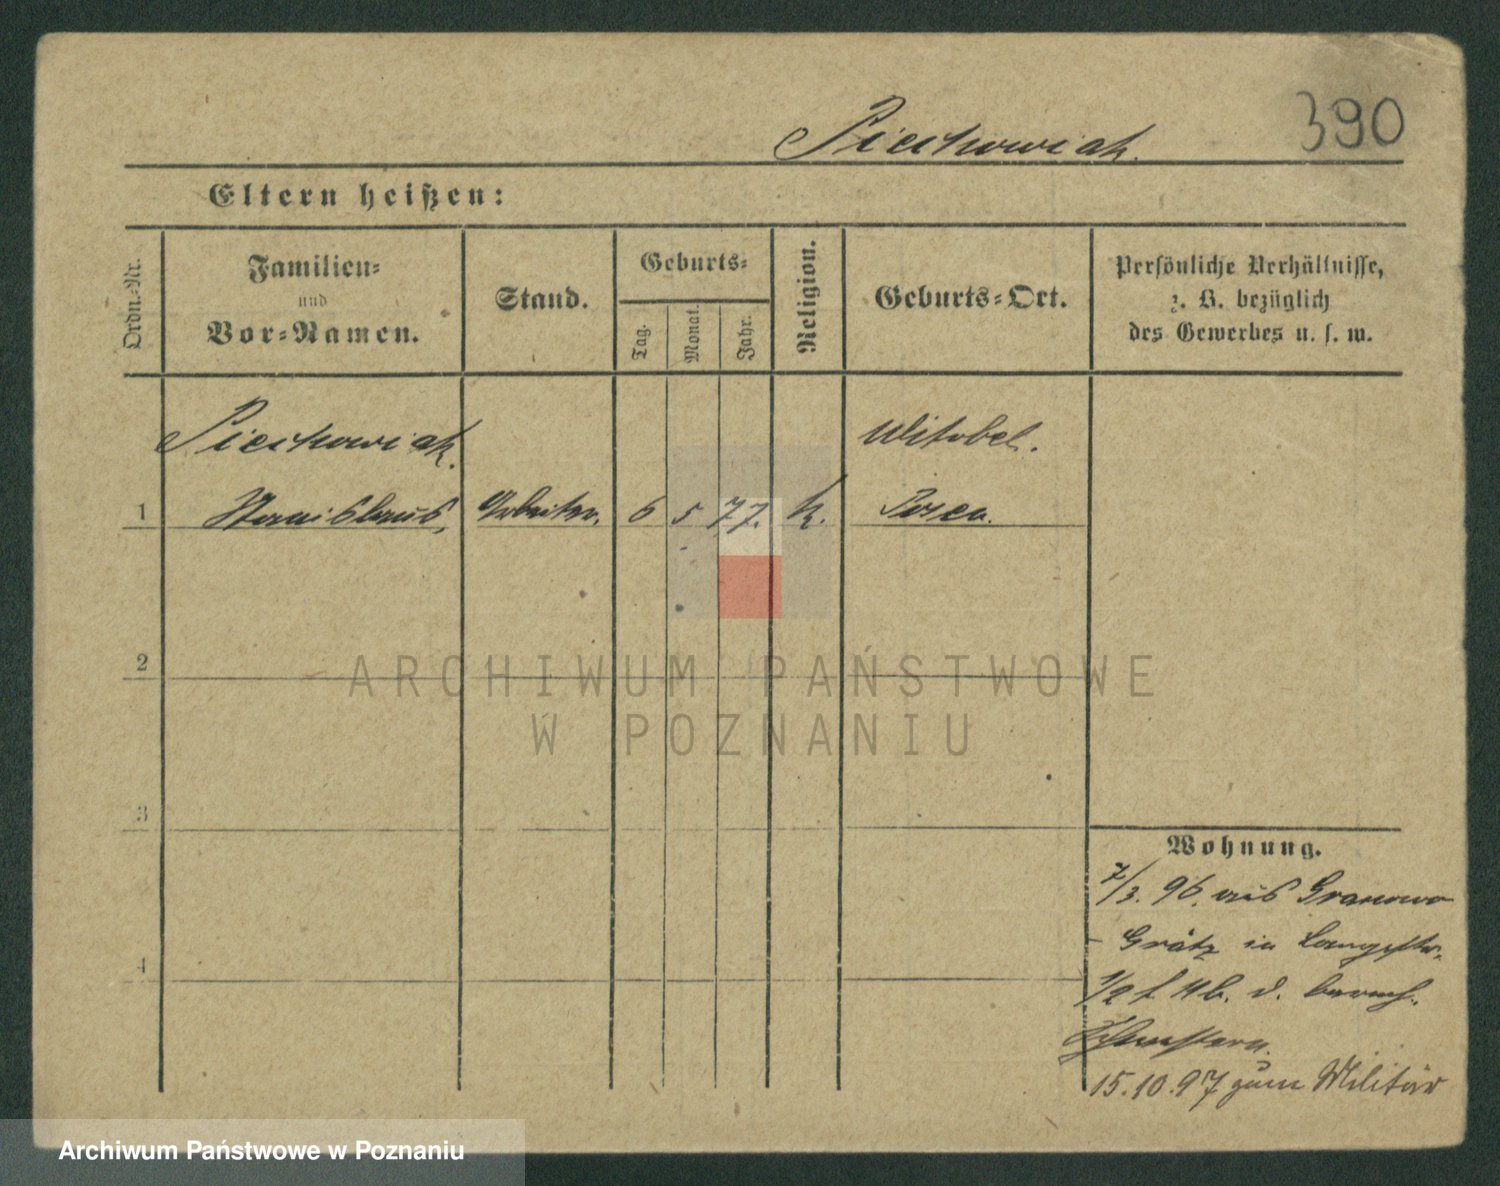 390
Piechowiak.
Eltern heißen:
Ordn.-Nr.
Familien-
und
Vor-Namen.
Stand.
Geburts-
Tag.
Monat.
Jahr.
Religion.
Geburts-Ort.
Persönliche Verhältnisse,
z. B. bezüglich
des Gewerbes u. s. w.
Piechowiak.
Witobel.
1 Stanislaus, Arbeiter. 6 5 77. k. Posen.
2
3
4
Wohnung.
7/3. 96. aus Granowo
- Grätz in Langestr.
1/2 f II b. d. barmh.
Schwestern.
15.10.97 zum Militär
ARCHIWUM PAŃSTWOWE
W POZNANIU
Archiwum Państwowe w Poznaniu